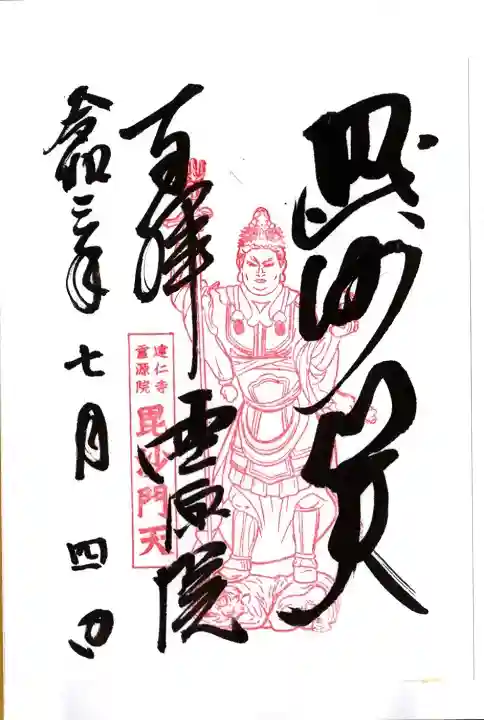 毘沙門天
拝 霊源院
建仁寺
霊源院
毘沙門天
令和三年七月四日